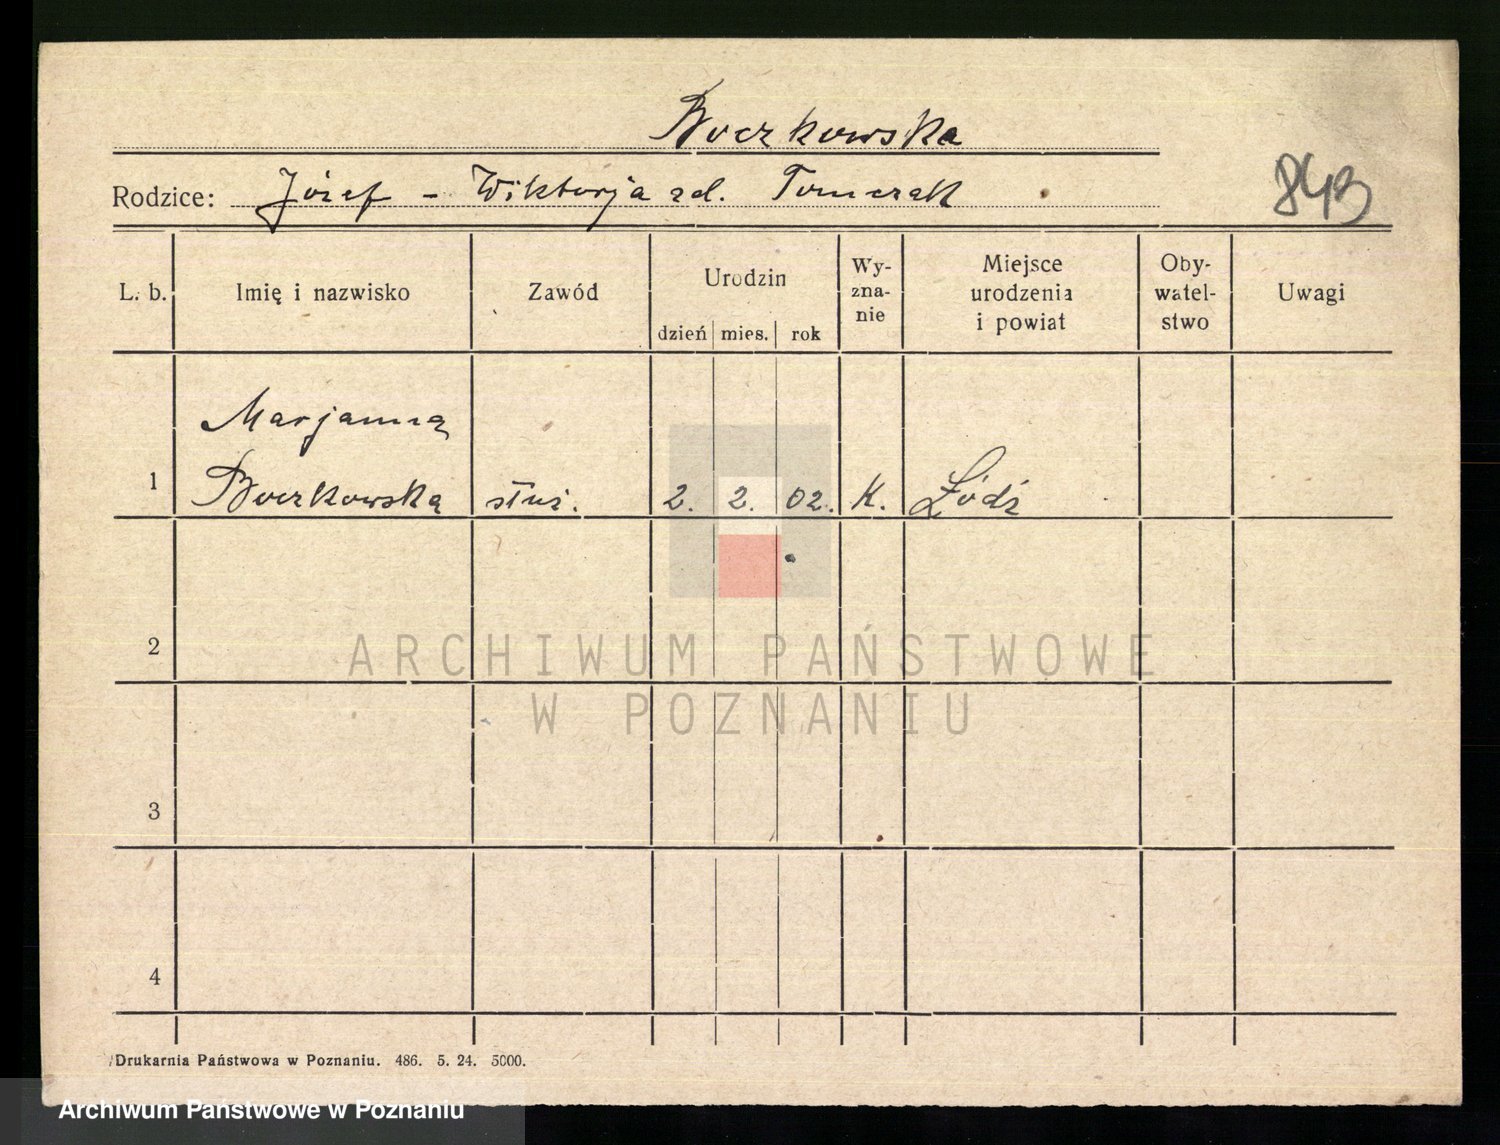 Boczkowska
Rodzice: Józef - Wiktorja zd. Tomczak
843
L. b. Imię i nazwisko Zawód Urodzin dzień mies. rok Wy-zna-nie Miejsce urodzenia i powiat Oby-watel-stwo Uwagi
Marjanna
1 Boczkowska służ. 2. 2. 02. K. Łódź
2
ARCHIWUM PAŃSTWOWE
W POZNANIU
3
4
Drukarnia Państwowa w Poznaniu. 486. 5. 24. 5000.
Archiwum Państwowe w Poznaniu